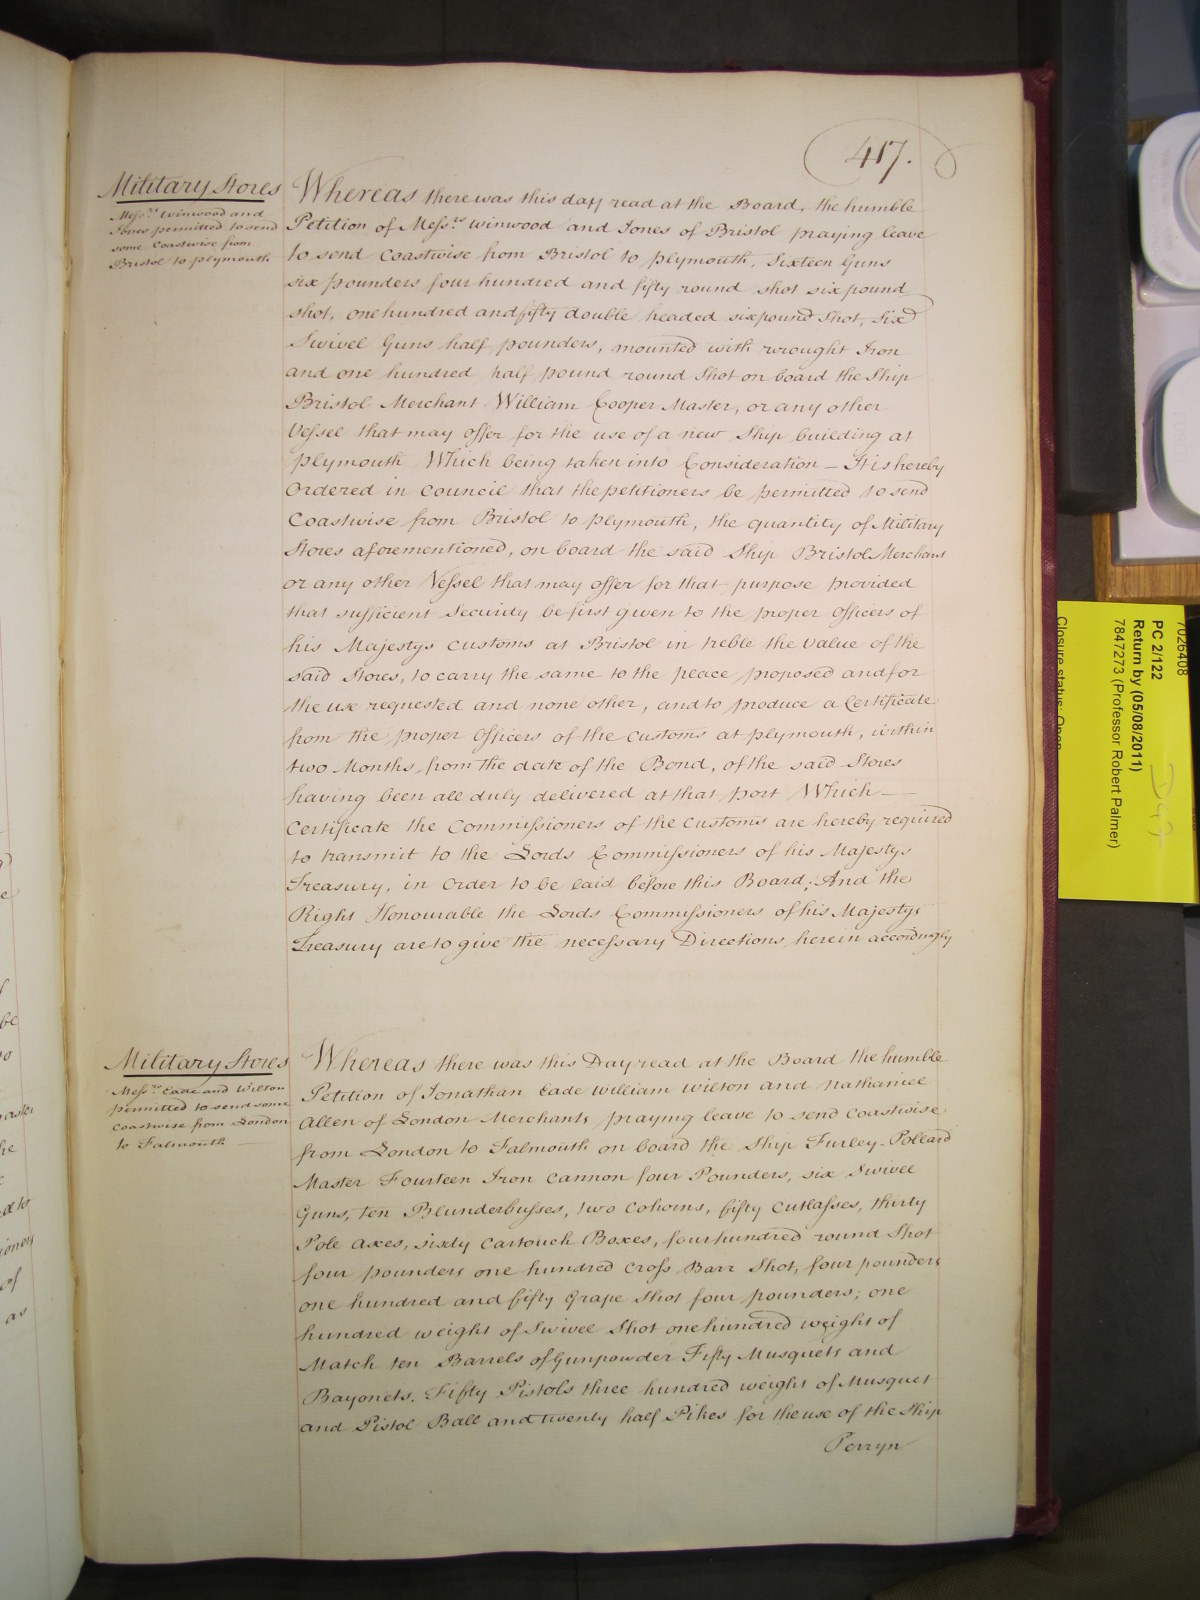 417.
Military Stores
Messrs. Winwood and
Jones permitted to send
some Coastwise from
Bristol to plymouth
Whereas there was this day read at the Board, the humble
Petition of Messrs. Winwood and Jones of Bristol praying leave
to send Coastwise from Bristol to plymouth, Sixteen Guns
six pounders four hundred and fifty round shot six pound
shot, one hundred and fifty double headed six pound Shot, Six
Swivel Guns half pounders, mounted with wrought Iron
and one hundred half pound round Shot on board the Ship
Bristol Merchant William Cooper Master, or any other
Vessel that may offer for the use of a new Ship building at
plymouth Which being taken into Consideration – It is hereby
Ordered in Council that the petitioners be permitted to send
Coastwise from Bristol to plymouth, the quantity of Military
Stores aforementioned, on board the said Ship Bristol Merchant
or any other Vessel that may offer for that purpose provided
that sufficient Security be first given to the proper Officers of
his Majestys Customs at Bristol in treble the Value of the
said Stores, to carry the same to the peace proposed and for
the use requested and none other, and to produce a Certificate
from the proper Officers of the Customs at plymouth, within
two Months from the date of the Bond, of the said Stores
having been all duly delivered at that port Which —
Certificate the Commissioners of the Customs are hereby required
to transmit to the Lords Commissioners of his Majestys
Treasury, in Order to be laid before this Board; And the
Right Honourable the Lords Commissioners of his Majestys
Treasury are to give the necessary Directions herein accordingly
Military Stores
Messrs. Eade and Wilton
permitted to send some
Coastwise from London
to Falmouth
Whereas there was this Day read at the Board the humble
Petition of Jonathan Eade William Wilson and Nathaniel
Allen of London Merchants praying leave to send Coastwise
from London to Falmouth on board the Ship Furley - Pollard
Master Fourteen Iron Cannon four Pounders, six Swivel
Guns, ten Blunderbusses, two Cohorns, fifty Cutlasses, thirty
Pole axes, sixty Cartouch Boxes, four hundred round Shot
four pounders one hundred Cross Barr Shot, four pounders
one hundred and fifty Grape Shot four pounders; one
hundred weight of Swivel Shot one hundred weight of
Match ten Barrels of Gunpowder Fifty Musquets and
Bayonets. Fifty Pistols three hundred weight of Musquet
and Pistol Ball and twenty half Pikes for the use of the Ship
Perryn
7026408
PC 2/122
Return by (05/08/2011)
7847273 (Professor Robert Palmer)
Closure status: Open